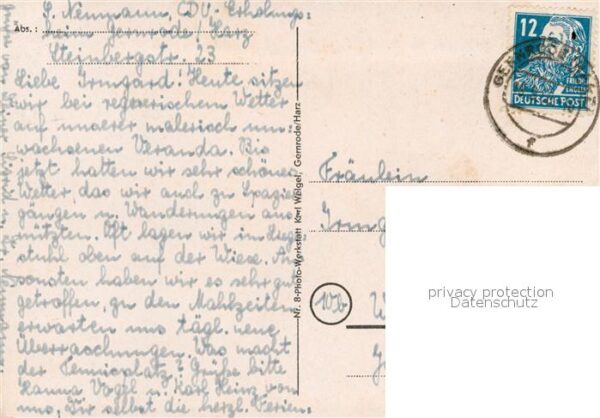 Abs.: S. Neumann, DV-Erholungs:
heim Gernrode/Harz
Steinbergstr. 23
Liebe Irmgard! Heute sitzen
wir bei regnerischen Wetter
auf unserer malerisch um
wachsenen Veranda. Bis
jetzt hatten wir sehr schönes
Wetter, das wir auch zu Spazier
gängen u. Wanderungen aus
nützten. Oft lagen wir im Liege
stuhl oben auf der Wiese. An
sonsten haben wir es sehr gut
getroffen, zu den Mahlzeiten
erwarten uns tägl. neue
Überraschungen. Was macht
der Tennisplatz? Grüße bitte
Hanna Vogel u. Karl Heinz von
uns, Dir selbst die herzl. Ferien:
Nr. 8-Photo-Werkstatt Karl Weigel, Gernrode/Harz
12
ENGELS
DEUTSCHE POST
GERNRODE
f
Fräulein
Irmg
10b
W
privacy protection
Datenschutz